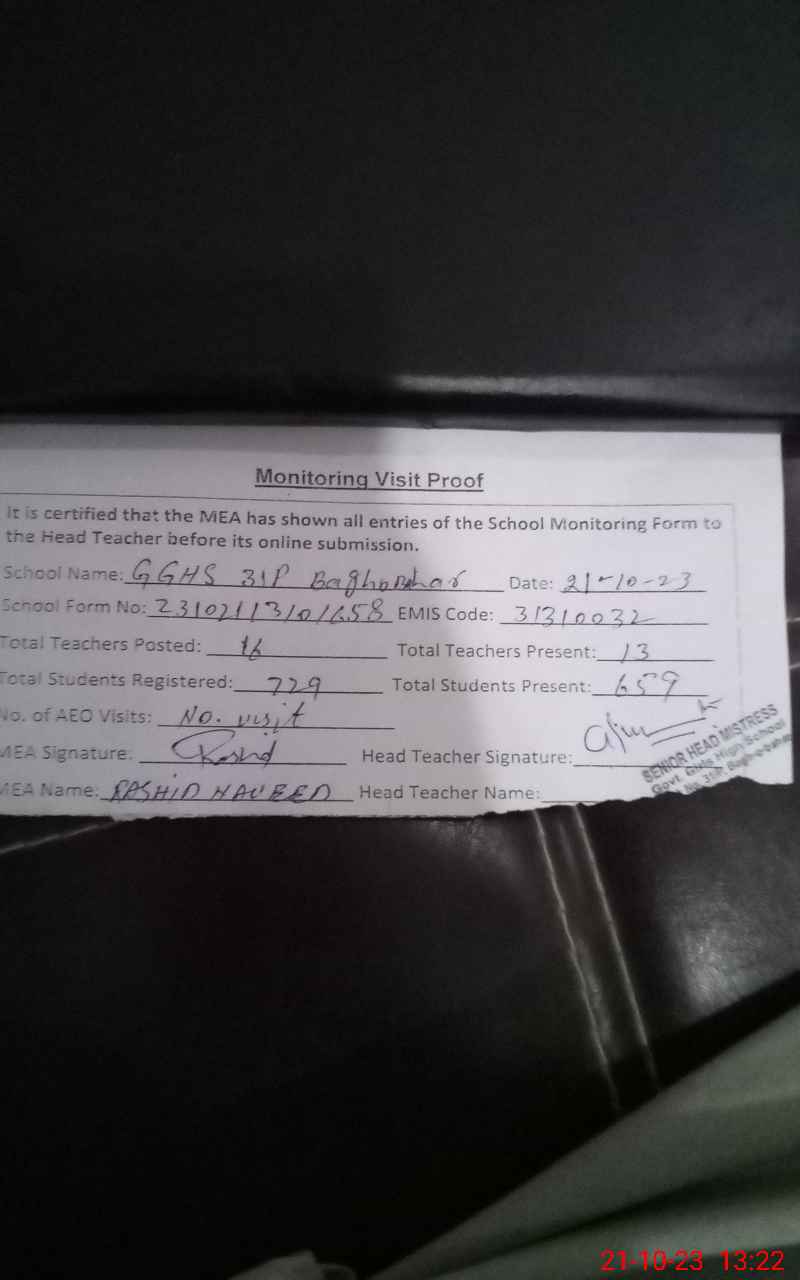 Monitoring Visit Proof
It is certified that the MEA has shown all entries of the School Monitoring Form to
the Head Teacher before its online submission.
School Name: GGHS 31P Baghobahar Date: 21-10-23
School Form No: EMIS Code: 31310032
Total Teachers Posted: 16 Total Teachers Present: 13
Total Students Registered: 729 Total Students Present: 659
No. of AEO Visits: No. visit
MEA Signature: Rashid Head Teacher Signature:
MEA Name: RASHID NAVEED Head Teacher Name:
SENIOR HEAD MISTRESS
Govt. Girls High School
No. 31P, Bagho-bahar
21-10-23 13:22